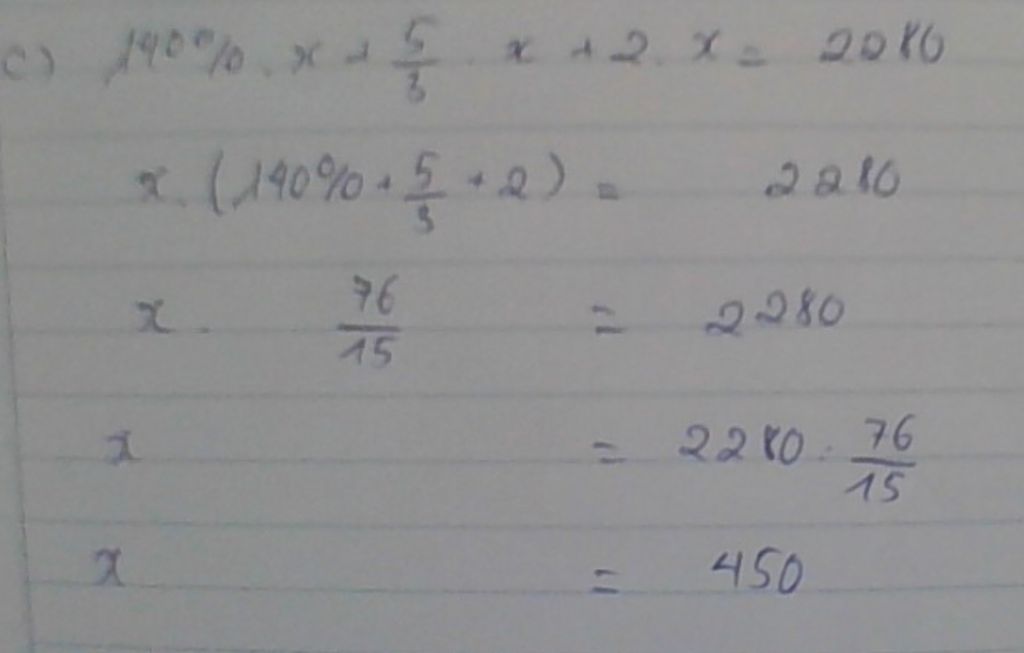 c) 140% . x + 5/3 . x + 2 . x = 2280
x . (140% + 5/3 + 2) = 2280
x . 76/15 = 2280
x = 2280 : 76/15
x = 450